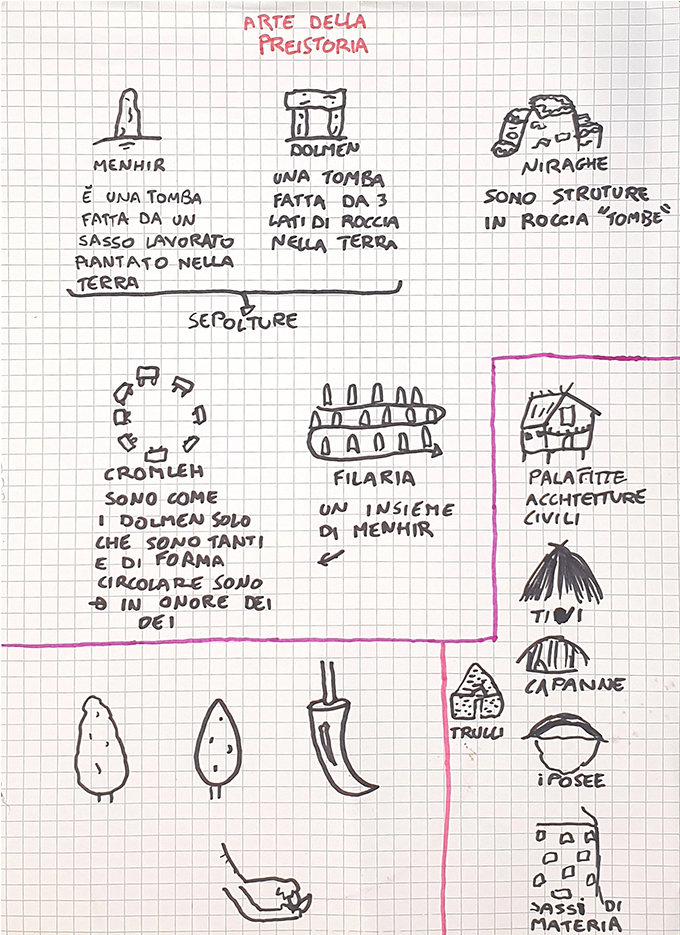 ARTE DELLA
PREISTORIA
MENHIR
È UNA TOMBA
FATTA DA UN
SASSO LAVORATO
PIANTATO NELLA
TERRA
DOLMEN
UNA TOMBA
FATTA DA 3
LATI DI ROCCIA
NELLA TERRA
NIRAGHE
SONO STRUTURE
IN ROCCIA "TOMBE"
SEPOLTURE
CROMLEH
SONO COME
I DOLMEN SOLO
CHE SONO TANTI
E DI FORMA
CIRCOLARE SONO
IN ONORE DEI
DEI
FILARIA
UN INSIEME
DI MENHIR
PALAFITTE
ACCHTETTURE
CIVILI
CAPANNE
TRULLI
IPOSEE
SASSI DI
MATERIA